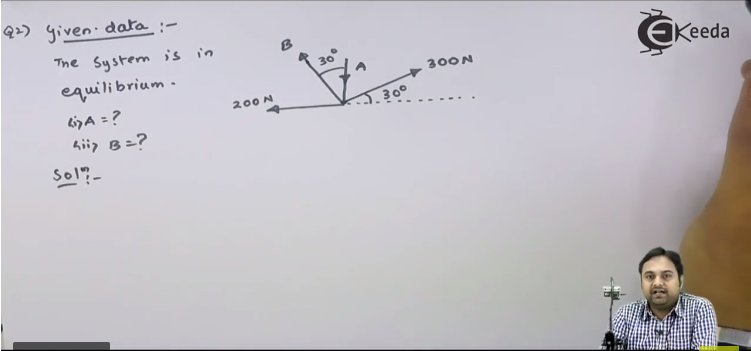 Q2) Given data :-
The System is in
equilibrium.
(i) A = ?
(ii) B = ?
Solⁿ:-
B
30°
A
300N
30°
200N
Ekeeda